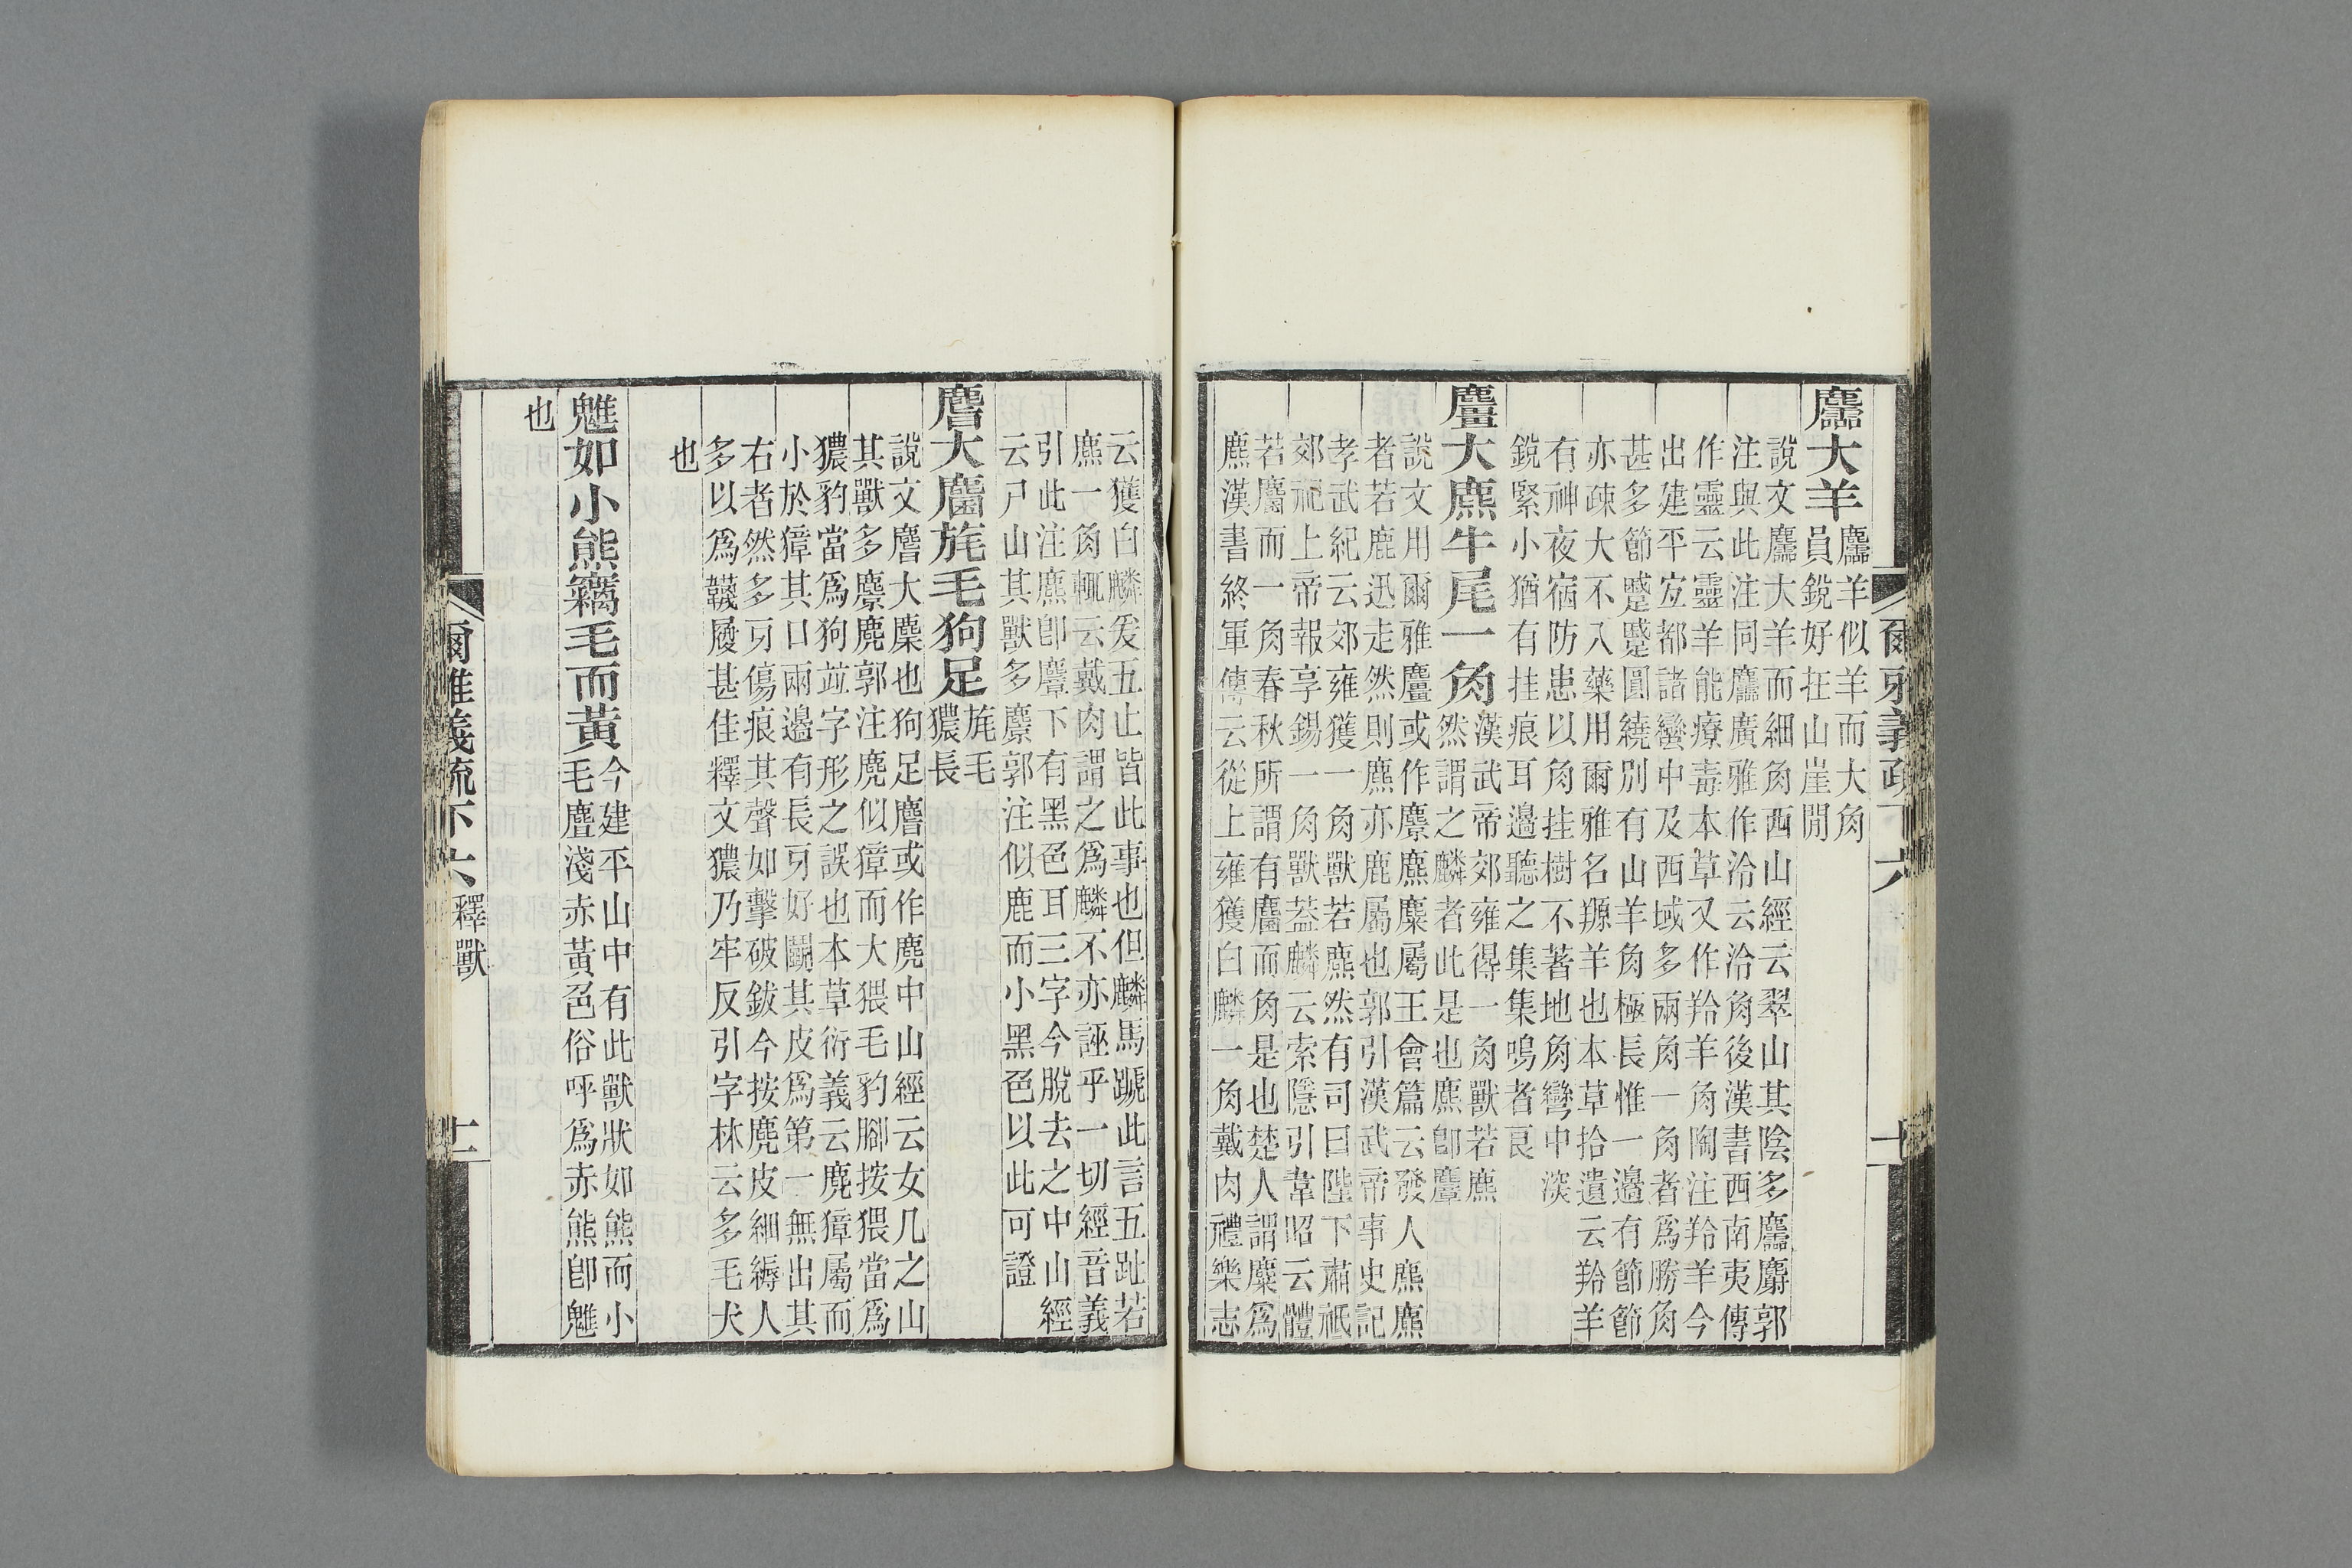 爾雅義疏下六 十
麢大羊 麢羊似羊而大角
員銳好在山崖閒
說文麢大羊而細角西山經云翠山其陰多麢麝郭
注與此注同麢廣雅作泠云泠角後漢書西南夷傳
作靈云靈羊能療毒本草又作羚羊角陶注羚羊今
出建平宜都諸蠻中及西域多兩角一角者爲勝角
甚多節蹙蹙圓繞別有山羊角極長惟一邊有節節
亦疎大不入藥用爾雅名羱羊也本草拾遺云羚羊
有神夜宿防患以角挂樹不著地角彎中深
銳緊小猶有挂痕耳邊聽之集集鳴者良
麠大麃牛尾一角 漢武帝郊雍得一角獸若麃
然謂之麟者此是也麃卽麞
說文用爾雅麠或作麖麃麋屬王會篇云發人麃麃
者若鹿迅走然則麃亦鹿屬也郭引漢武帝事史記
孝武紀云郊雍獲一角獸若麃然有司曰陛下肅祗
郊祀上帝報享錫一角獸葢麟云索隱引韋昭云體
若麕而一角春秋所謂有麕而角是也楚人謂麋爲
麃漢書終軍傳云從上雍獲白麟一角戴肉禮樂志
云獲白麟爰五止皆此事也但麟馬蹏此言五趾若
麃一角輒云戴肉謂之爲麟不亦誣乎一切經音義
引此注麃卽麞下有黑色耳三字今脫去之中山經
云尸山其獸多麖郭注似鹿而小黑色以此可證
𪊨大麕旄毛狗足 旄毛
獳長
說文𪊨大麋也狗足𪊨或作麂中山經云女几之山
其獸多麖麂郭注麂似獐而大猥毛豹腳按猥當爲
獳豹當爲狗竝字形之誤也本草衍義云麂獐屬而
小於獐其口兩邊有長牙好鬭其皮爲第一無出其
右者然多牙傷痕其聲如擊破鈸今按麂皮細縟人
多以爲韈履甚佳釋文獳乃牢反引字林云多毛犬
也
魋如小熊竊毛而黃 今建平山中有此獸狀如熊而小
毛麆淺赤黃色俗呼爲赤熊卽魋
也
爾雅義疏下六 釋獸 十一